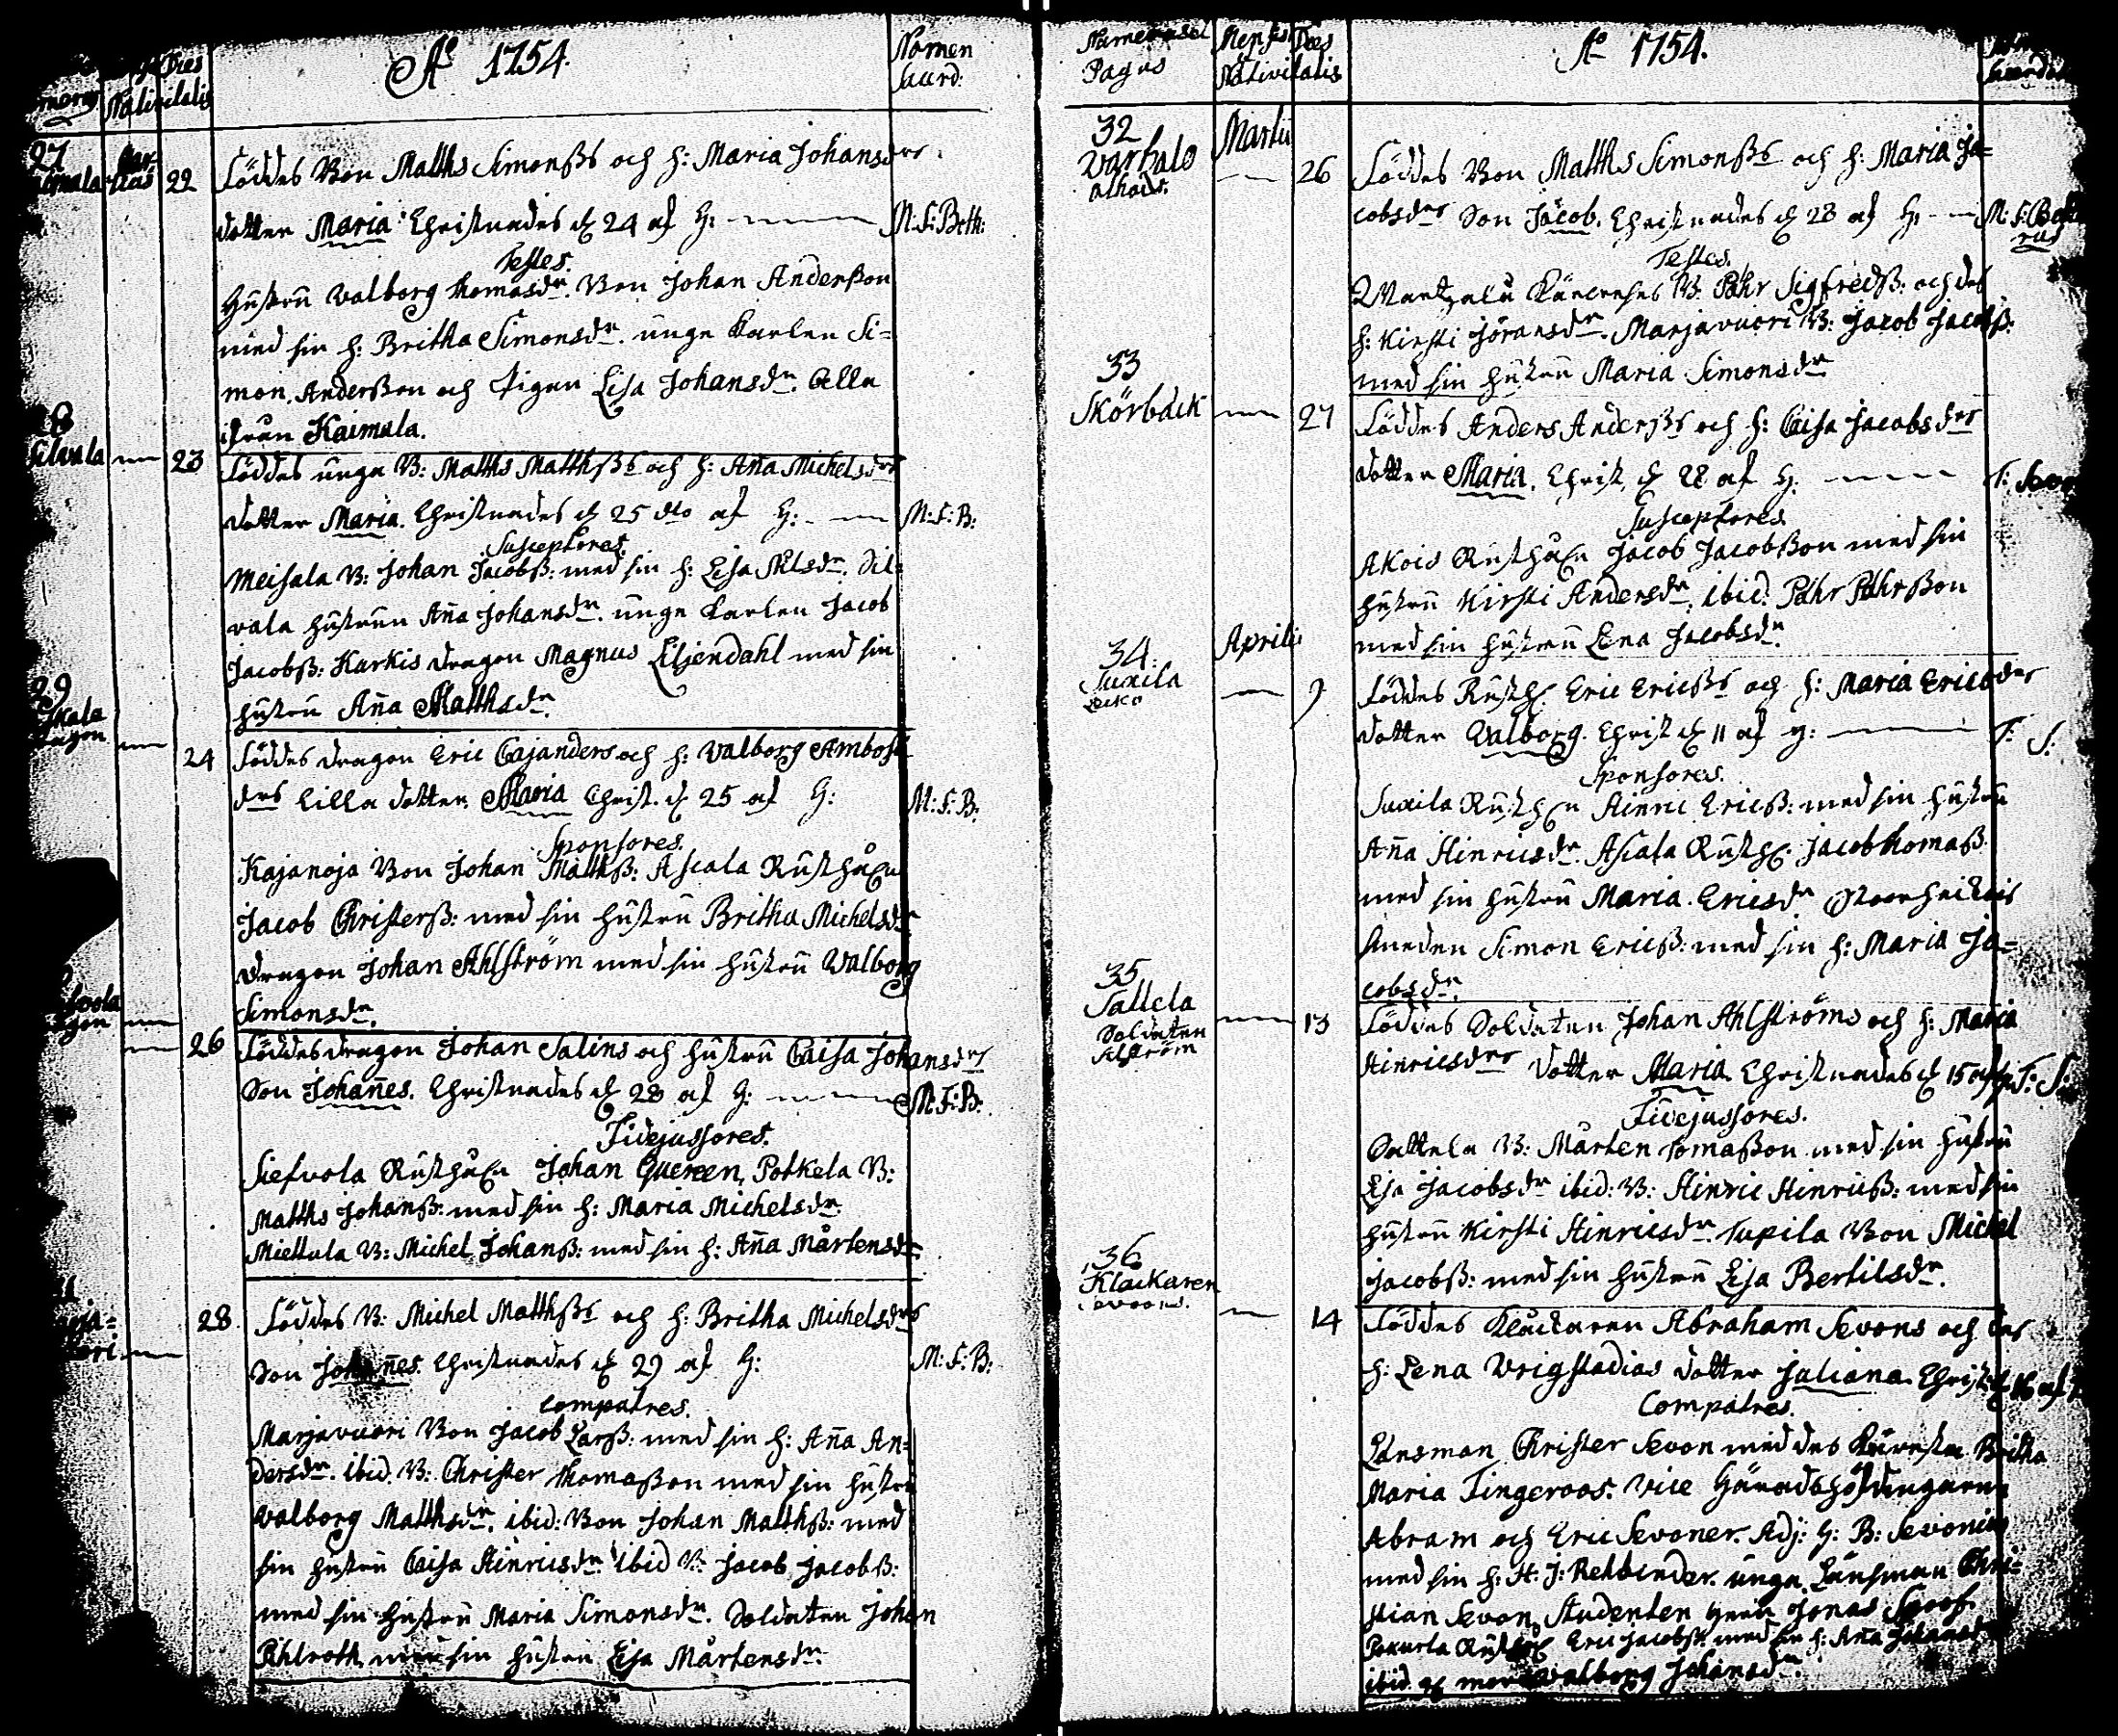 Dies
Nativitatis
Ao 1754.
Nomen
Saurd:
27
22 Föddes Bon Matths Simonßs och h: Maria Johansdrs
dotter Maria Christnades d 24 af H: M:S:Beth:
Testes.
hustru Valborg thomasdr. Bon Johan Anderßon
med sin h: Britha Simonsdr. unge Karlen Si=
mon Anderßon och Pigan Lisa Johansdr. Alla
ifrån Kaimala.
23 Föddes unga B: Matths Matthßs och h: Ana Michelsdrs
dotter Maria. Christnades d 25 dto af H: M:S:B:
Susceptores.
Meisala B: Johan Jacobß: med sin h: Lisa Nilsdr. Sil=
vala hustrun Ana Johansdr. unge Karlen Jacob
Jacobß: Karkis dragon Magnus Liljendahl med sin
hustru Ana Matthsdr.
29
24 Föddes dragon Eric Cajanders och h: Valborg Ambros
drs lilla dotter Maria Christ. d 25 af H: M:S:B:
Sponsores.
Kajanoja Bon Johan Matthß: Ascala Rusthåln
Jacob Christerß: med sin hustru Britha Michelsdr
dragon Johan Ahlström med sin hustru Walborg
Simonsdr.
26 Föddes dragon Johan Salins och hustru Caisa Johansdrs
Son Johanes. Christnades d 28 af H: M:S:B:
Fidejussores.
Siefvola Rusthåln Johan Queren, Potkela B:
Matths Johanß: med sin h: Maria Michelsdr.
Miettula B: Michel Johanß: med sin h: Ana Mårtensdr.
28 Föddes B: Michel Matthßs och h: Britha Michelsdrs
Son Johanes. Christnades d 29 af H: M:S:B:
Compatres.
Marjavuori Bon Jacob Larß: med sin h: Ana An=
dersdr. ibid. B: Christer thomaßon med sin hustru
Walborg Matthsdr. ibid: Bon Johan Matthß: med
sin hustru Caisa Hinricsdr. ibid B: Jacob Jacobß:
med sin hustru Maria Simonsdr. Soldaten Johan
Pihlroth med sin hustru Lisa Mårtensdr.
Pagus
Mensis Dies
Nativitatis
Ao 1754.
32
Martii
26 Föddes Bon Matths Simonßs och h: Maria Ja=
cobsdrs Son Jacob. Christnades d 28 af H:
Testes.
B: Påhr Sigfredß: och des
h: Kirsti Jöransdr. Marjavuori B: Jacob Jacobß:
med sin hustru Maria Simonsdr
33
Skörback 27 Föddes Anders Anderßs och h: Caisa Jacobsdrs
dotter Maria. Christ. d 28 af H.
Susceptores.
Akois Rusthåln Jacob Jacobßon med sin
hustru Kirsti Andersdr. ibid. Påhr Påhrßon
med sin hustru Lena Jacobsdr.
34.
Aprilis
Suxila 9 Föddes Rusth. Eric Ericßs och h: Maria Ericsdrs
dotter Valborg. Christ d 11 af H: S: S:
Sponsores.
Suxila Rusthln Hinric Ericß: med sin hustru
Ana Hinricsdr. Ascala Rusth. Jacob thomaß.
med sin hustru Maria Ericsdr
Smeden Simon Ericß: med sin h: Maria Ja=
cobsdr.
35
Sattela
Soldaten
Alström
13 Föddes Soldaten Johan Ahlströms och h: Maria
Hinricsdrs dotter Maria. Christnades d 15 af
Fidejussores.
Sattela B: Mårten Tomaßon med sin hustru
Lisa Jacobsdr ibid: B: Hinric Hinricß: med sin
hustru Kirsti Hinricsdr. Tupila Bon Michel
Jacobß: med sin hustru Lisa Bertilsdr.
36
Klackaren
14 Föddes Klåckaren Abraham Sevons och des
h: Lena Wrigstadias dotter Juliana. Christ d 16 af
Compatres.
Länsman Christer Sevon med des Britha
Maria Fingeroos. Vice Häradshöfdingarne
Abram och Eric Sevoner. Adj: H: B: Sevonius
med sin h: H: J: Rehbinder. unga Länsman Chri=
stian Sevon, Studenten Herr Jonas Spoof.
Eric Jacobß: med sin h: Ana Johansdr
ibid. Walborg Johansdr.